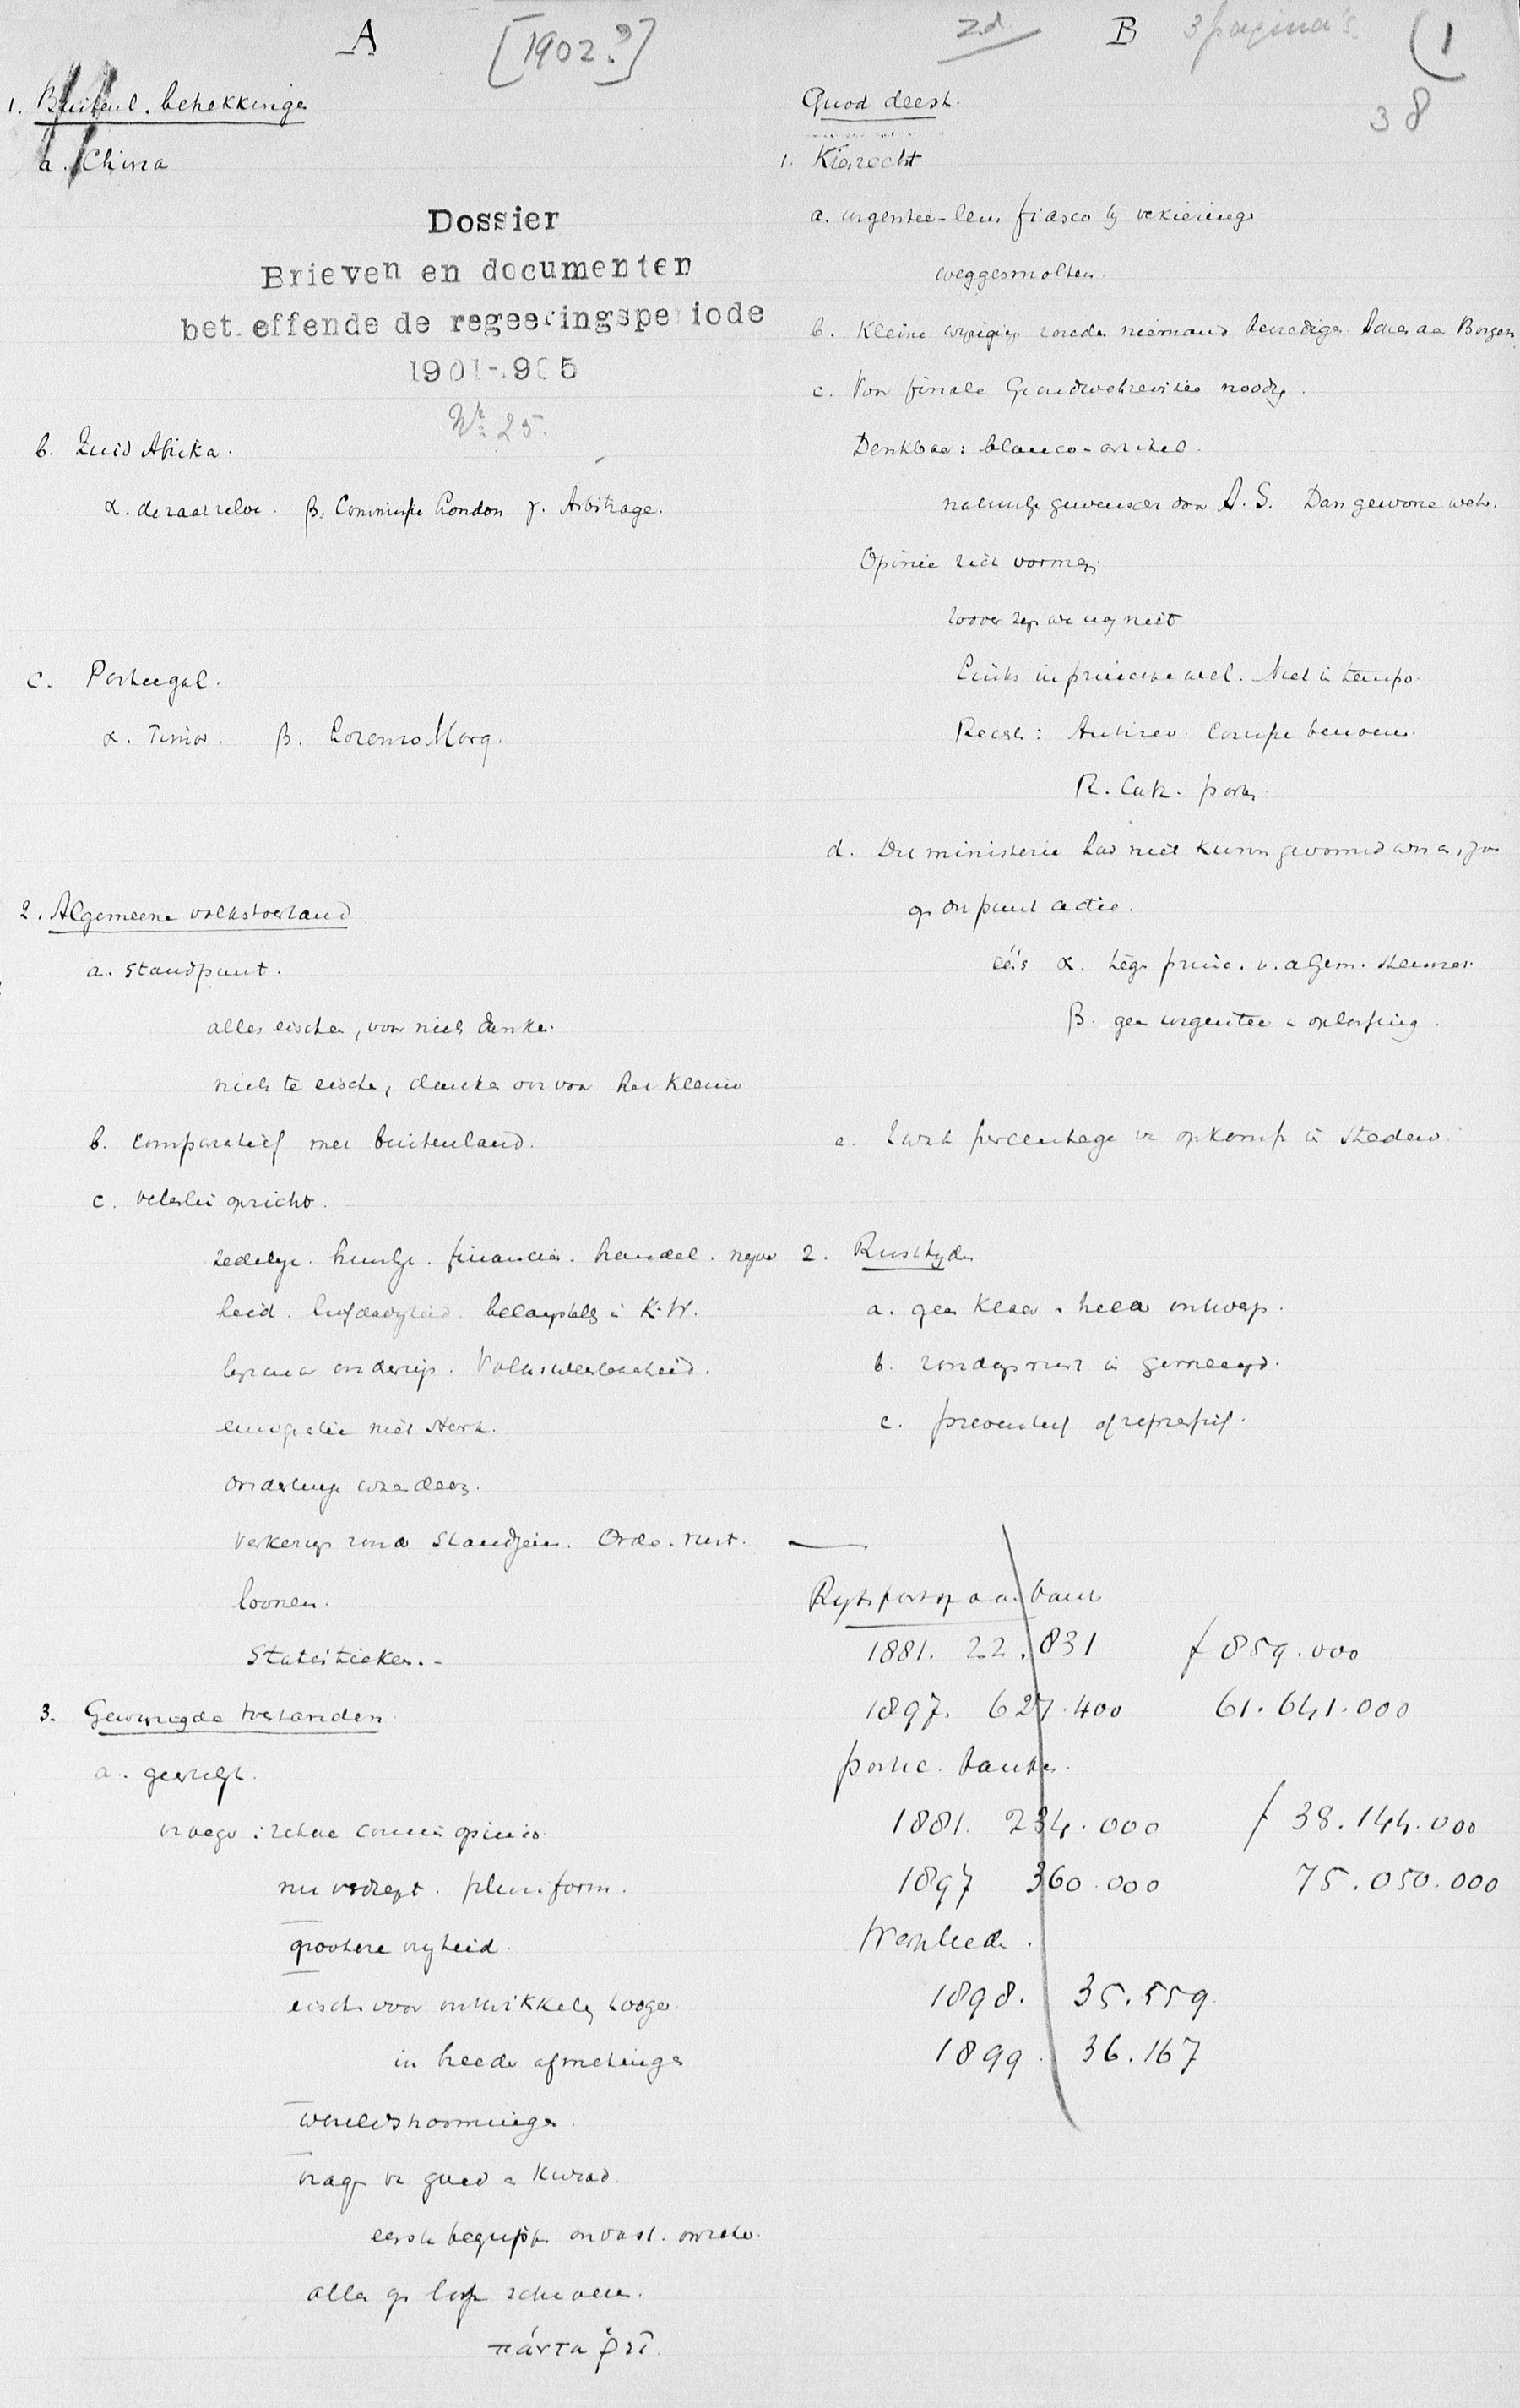 A
[1902?]
1. Buitenl. betrekkinge
a. China
Dossier
Brieven en documenten
betreffende de regeeringsperiode
1901-1905
No 25.
b. Zuid Afrika.
α. de raad
β. Commissie London γ. Arbitrage.
c. Portugal.
α. Timor. β. Lorenzo Marq.
2. Algemeene volkstoestand
a. standpunt.
alles eischen, voor niets danken
niets te eischen, danken ook voor het kleine
b. comparatief met buitenland.
c. velerlei opzicht.
zedelijk. huislijk. financien. handel. nijver
heid. liefdadigheid. belangstell. in K. W.
onderwijs. Volksweerbaarheid.
emigratie niet sterk.
onderlinge
Verkeering rond Orde. rust.
loonen.
Statistieken.-
3. Gewijzigde toestanden.
a. geestelijk.
vroeger: zekere communis opinio
nu verdiept. pluriform.
grootere vrijheid.
eisch voor ontwikkeling hooger
in breede afmetingen
wereldstroomingen.
vrage van goed en kwaad.
eerste begrippen onvast. onzeker.
alles op losse schroeven.
πάντα ῥεῖ.
z.d.
B
3 pagina's.
(1
38
Quod deest.
1. Kiesrecht
a. urgentie-leus fiasco bij verkiezinge
weggesmolten.
b. Kleine wijziging zoude niemand bevredigen. Borgesius
c. Voor finale Grondwetsrevisie noodig.
Denkbaar: blanco-artikel.
natuurlijk gewenscht door A. S. Dan gewone wet.
Opinie zich vormen
zoover zijn we nog niet
Links in principe wel. Niet in tempo.
Rechts: Antirev.
R. Cath. party
d. Dit ministerie had niet kunnen gevormd
op dit punt actie.
eisch α. tegen princ. v. algem. stemrecht
β. geen urgentie in oplossing.
e. percentage van opkomst in steden.
2. Rusttijden
a. geen klaar heel ontwerp.
b. zondagsrust in gemengd.
c. preventief of repressief.
Rijkspostspaarbank
1881. 22.831 f 859.000
1897. 627.400 61.641.000
partic. banken.
1881. 234.000 f 38.144.000
1897 360.000 75.050.000
Werklieden.
1898. 35.559.
1899. 36.167